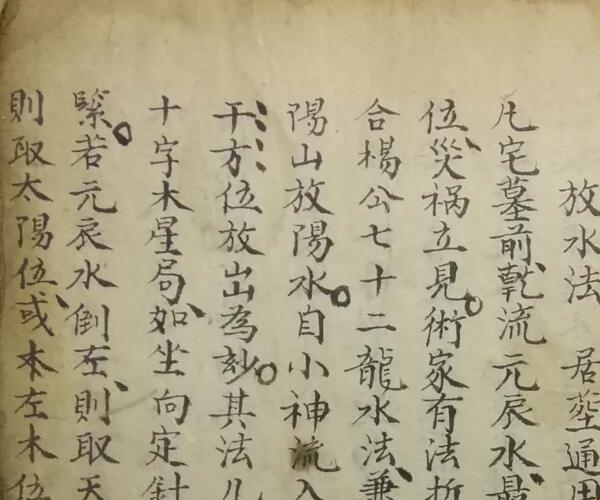 放水法 居塋通用
凡宅墓前乾流元辰水最
位災祸立見術家有法折
合楊公七十二龍水法兼
陽山放陽水自小神流入
干方位放出為妙其法凡
十字木星局如坐向定針
緊若元辰水倒左則取天
則取太陽位或本左木位